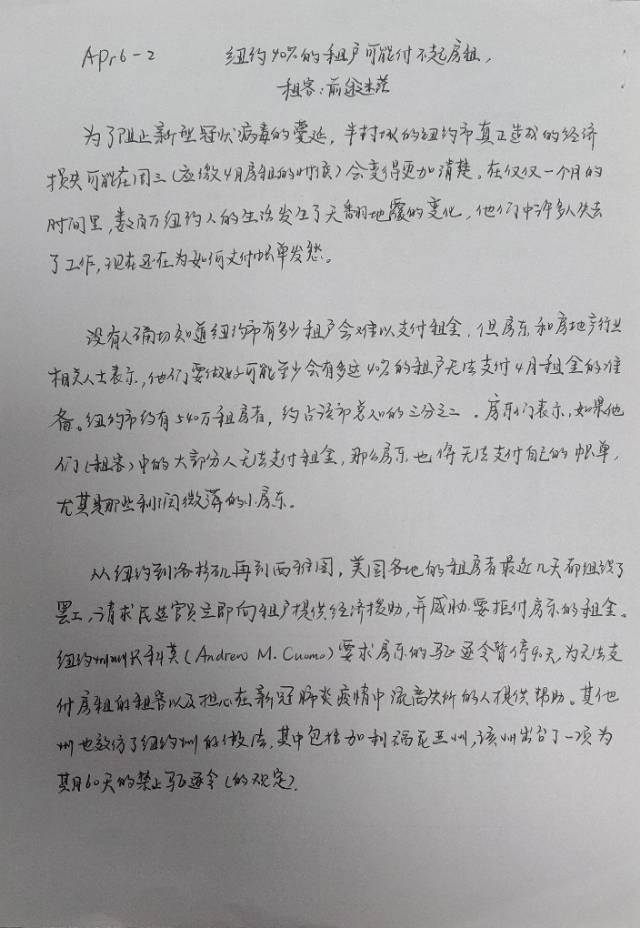 Apr 6-2 纽约40%的租户可能付不起房租,
租客:前途迷茫
为了阻止新型冠状病毒的蔓延,半封城的纽约市真正造成的经济
损失可能在周三(应缴4月房租的时候)会变得更加清楚。在仅仅一个月的
时间里,数百万纽约人的生活发生了天翻地覆的变化,他们中许多人失去
了工作,现在还在为如何支付帐单发愁。
没有人确切知道纽约市有多少租户会难以支付租金,但房东和房地产行业
相关人士表示,他们要做好可能至少会有多达40%的租户无法支付4月租金的准
备。纽约市约有540万租房者,约占该市总人口的三分之二。房东们表示,如果他
们(租客)中的大部分人无法支付租金,那么房东也将无法支付自己的帐单,
尤其是那些利润微薄的小房东。
从纽约到洛杉矶再到西雅图,美国各地的租房者最近几天都组织了
罢工,请求民选官员立即向租户提供经济援助,并威胁要拒付房东的租金。
纽约州州长科莫(Andrew M. Cuomo)要求房东的驱逐令暂停90天,为无法支
付房租的租客以及担心在新冠肺炎疫情中流离失所的人提供帮助。其他
州也效仿了纽约州的做法,其中包括加利福尼亚州,该州出台了一项为
期60天的禁止驱逐令(的规定).